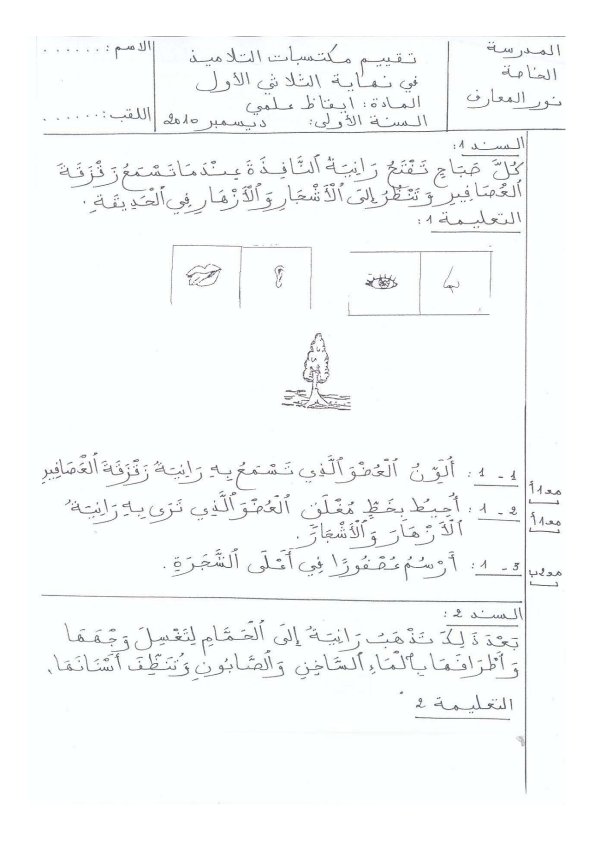 المدرسة
الخاصة
نور المعارف
تقييم مكتسبات التلاميذ
في نهاية الثلاثي الأول
المادة: ايقاظ علمي
السنة الأولى: ديسمبر 2010
الاسم: . . . . . .
اللقب: . . . . . .
السند 1:
كُلَّ صَبَاحٍ تَفْتَحُ رَانِيَةُ النَّافِذَةَ عِنْدَمَا تَسْمَعُ زَقْزَقَةَ
الْعَصَافِيرِ وَ تَنْظُرُ إِلَى الْأَشْجَارِ وَ الْأَزْهَارِ فِي الْحَدِيقَةِ.
التعليمة 1:
1 - 1: أُلَوِّنُ الْعُضْوَ الَّذِي تَسْمَعُ بِهِ رَانِيَةُ زَقْزَقَةَ الْعَصَافِيرِ
مع1أ
1 - 2: أُحِيطُ بِخَطٍّ مُغْلَقٍ الْعُضْوَ الَّذِي تَرَى بِهِ رَانِيَةُ
مع1أ
الْأَزْهَارَ وَ الْأَشْجَارَ.
1 - 3: أَرْسُمُ عُصْفُورًا فِي أَعْلَى الشَّجَرَةِ.
مع2ب
السند 2:
بَعْدَ ذَلِكَ تَذْهَبُ رَانِيَةُ إِلَى الْحَمَّامِ لِتَغْسِلَ وَجْهَهَا
وَ أَطْرَافَهَا بِالْمَاءِ السَّاخِنِ وَ الصَّابُونِ وَ تُنَظِّفَ أَسْنَانَهَا.
التعليمة 2